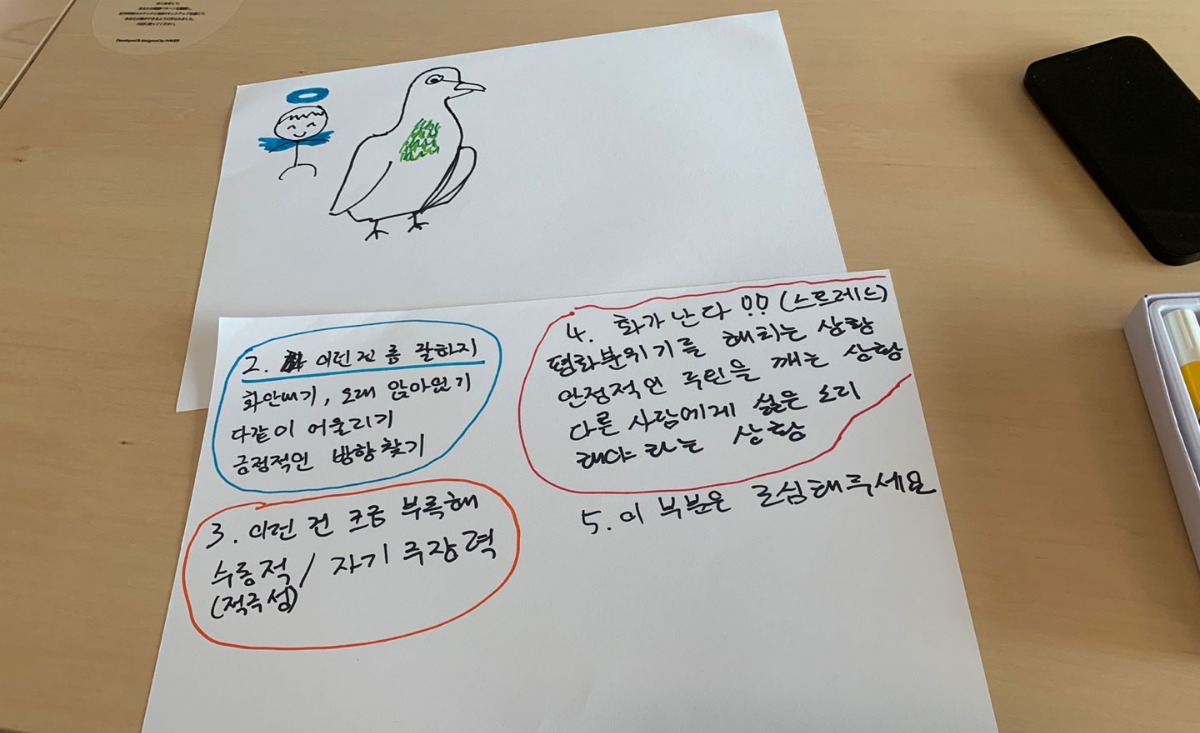 2. 이런 건 좀 잘하지
화안내기, 오래 앉아있기
다같이 어울리기
긍정적인 방향 찾기
3. 이런 건 조금 부족해
수동적 / 자기 주장력
(적극성)
4. 화가 난다!! (스트레스)
평화분위기를 해치는 상황
안정적인 루틴을 깨는 상황
다른 사람에게 싫은 소리
해야 하는 상황
5. 이 부분은 조심해주세요